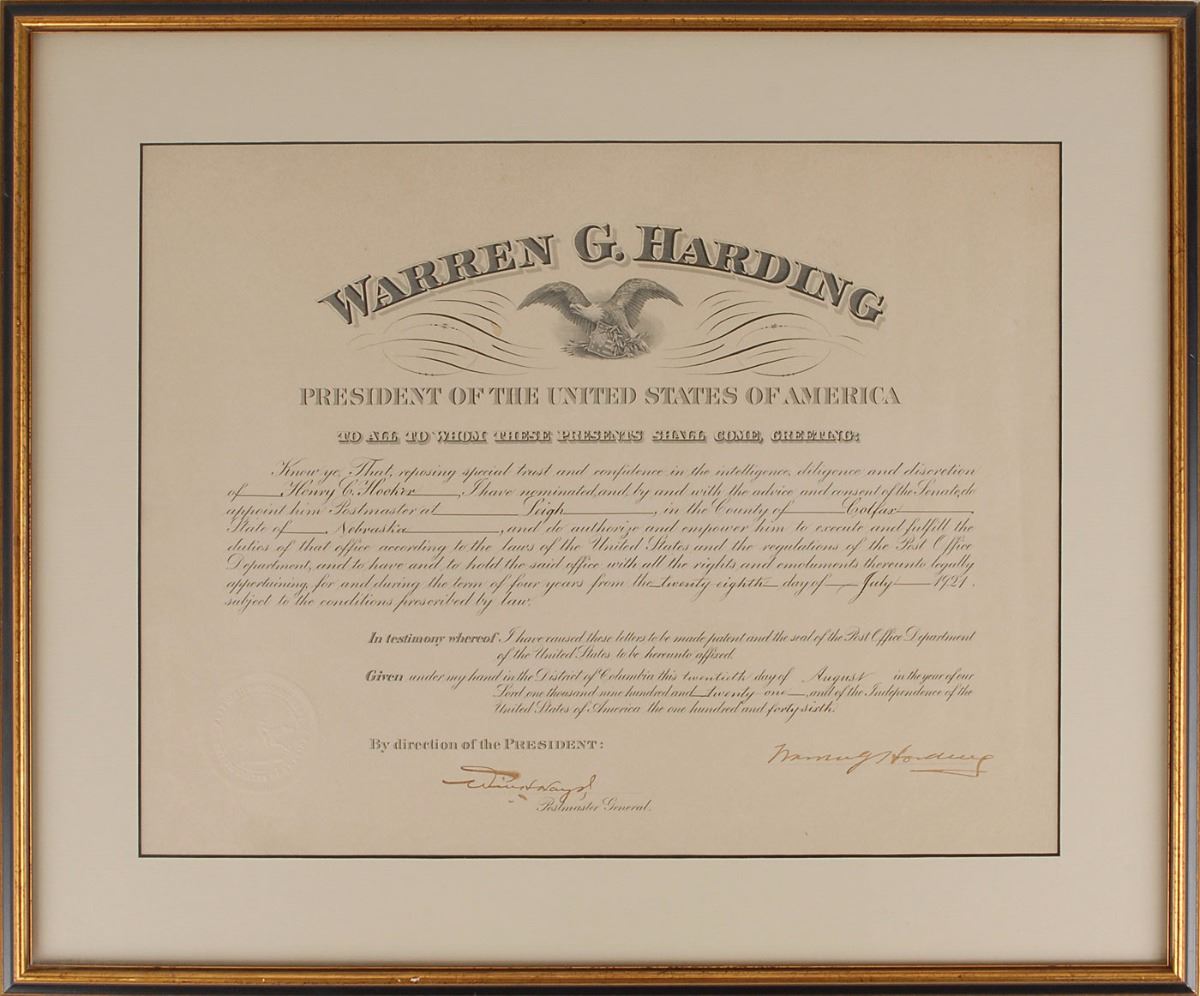 WARREN G. HARDING
PRESIDENT OF THE UNITED STATES OF AMERICA
TO ALL TO WHOM THESE PRESENTS SHALL COME, GREETING:
Know ye, That, reposing special trust and confidence in the intelligence, diligence and discretion
of Henry C. Hooker, I have nominated, and, by and with the advice and consent of the Senate, do
appoint him Postmaster at Leigh, in the County of Colfax,
State of Nebraska, and do authorize and empower him to execute and fulfill the
duties of that office according to the laws of the United States and the regulations of the Post Office
Department, and to have and to hold the said office with all the rights and emoluments thereunto legally
appertaining, for and during the term of four years from the twenty eighth day of July 1921,
subject to the conditions prescribed by law.
In testimony whereof I have caused these letters to be made patent and the seal of the Post Office Department
of the United States to be hereunto affixed.
Given under my hand in the District of Columbia this twentieth day of August in the year of our
Lord one thousand nine hundred and twenty-one, and of the Independence of the
United States of America the one hundred and forty sixth.
By direction of the PRESIDENT:
Warren G Harding
Will H Hays
Postmaster General.